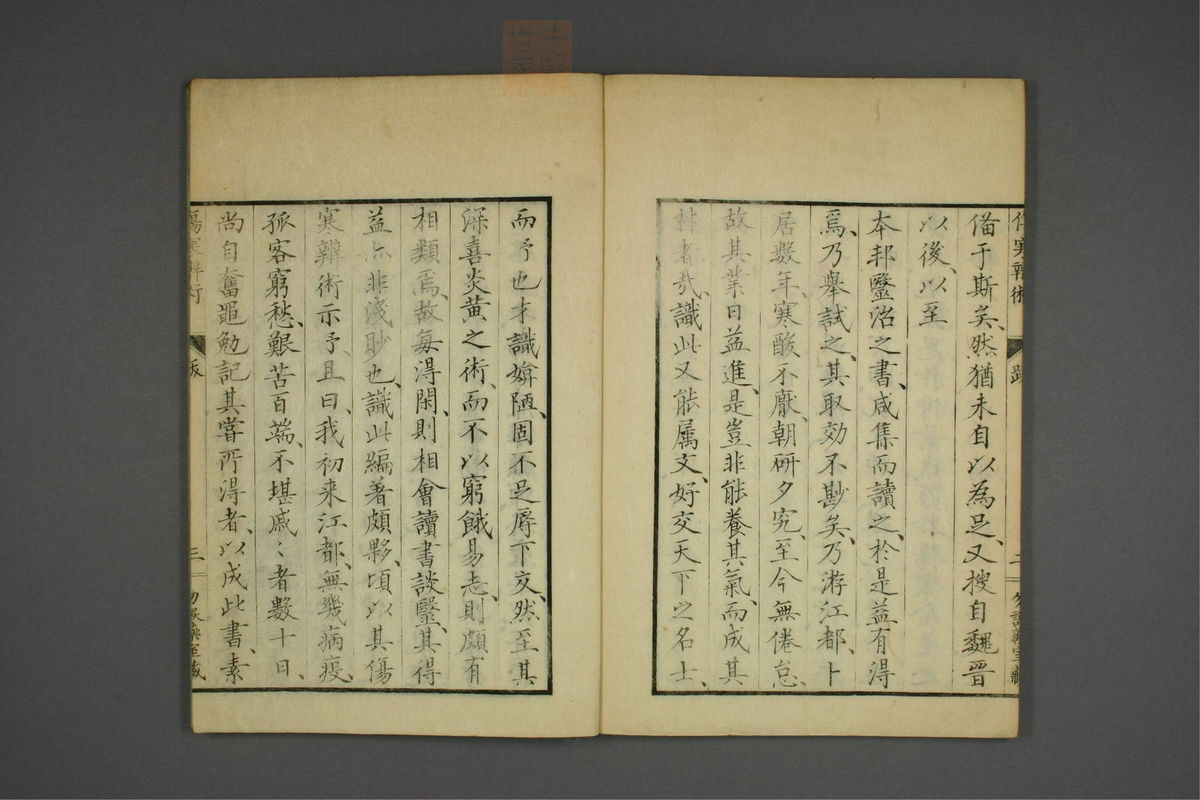 備于斯矣、然猶未自以為足、又搜自魏晋
以後、以至
本邦醫治之書、咸集而讀之、於是益有得
焉、乃舉試之、其取効不尠矣、乃游江都、卜
居數年、寒酸不厭、朝研夕究、至今無倦怠、
故其業日益進、是豈非能養其氣、而成其
材者哉、識此又能属文、好交天下之名士、
而予也才識媕陋、固不足辱下交、然至其
深喜炎黄之術、而不以窮餓易志、則頗有
相類焉、故每得閑、則相會讀書談醫、其得
益亦非淺眇也、識此編著頗夥、頃以其傷
寒辨術示予、且曰、我初来江都、無幾病疫、
孤客窮愁、艱苦百端、不堪戚〻者數十日、
尚自奮黽勉記其嘗所得者、以成此書、素
傷寒辨術
跋
三